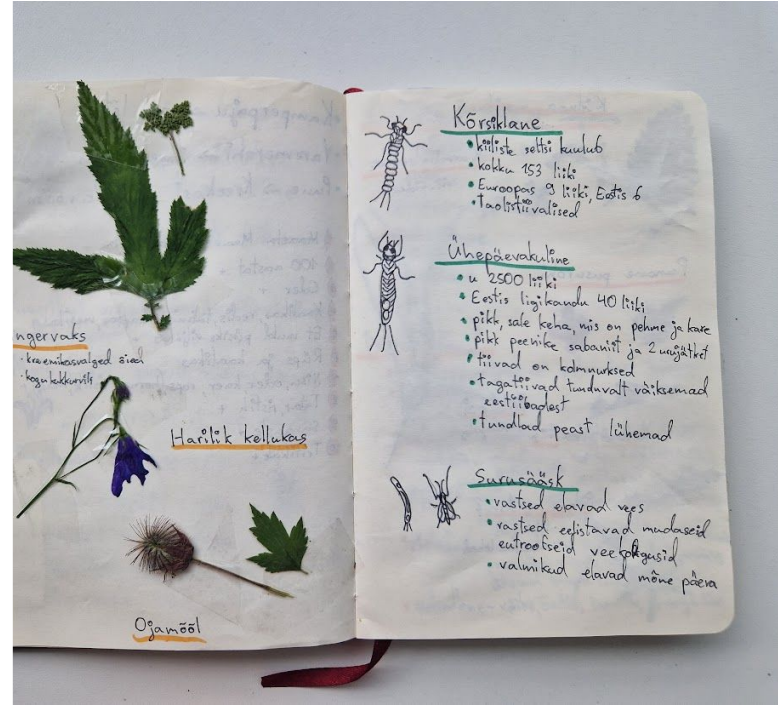 ngervaks
· kreemikasvalged õied
· kogukakkurvili
Harilik kellukas
Ojamõõl
Kõrsiklane
• kiiliste seltsi kuulub
• kokku 153 liiki
• Euroopas 9 liiki, Eestis 6
• taolistiivalised
Ühepäevakuline
• u 2500 liiki
• Eestis ligikaudu 40 liiki
• pikk, sale keha, mis on pehme ja kare
• pikk peenike sabaniit ja 2 urujätket
• tiivad on kolmnurksed
• tagatiivad tunduvalt väiksemad
eestiibadest
• tundlad peast lühemad
Surusääsk
• vastsed elavad vees
• vastsed eelistavad mudaseid
eutroofseid veekogusid
• valmikud elavad mõne päeva